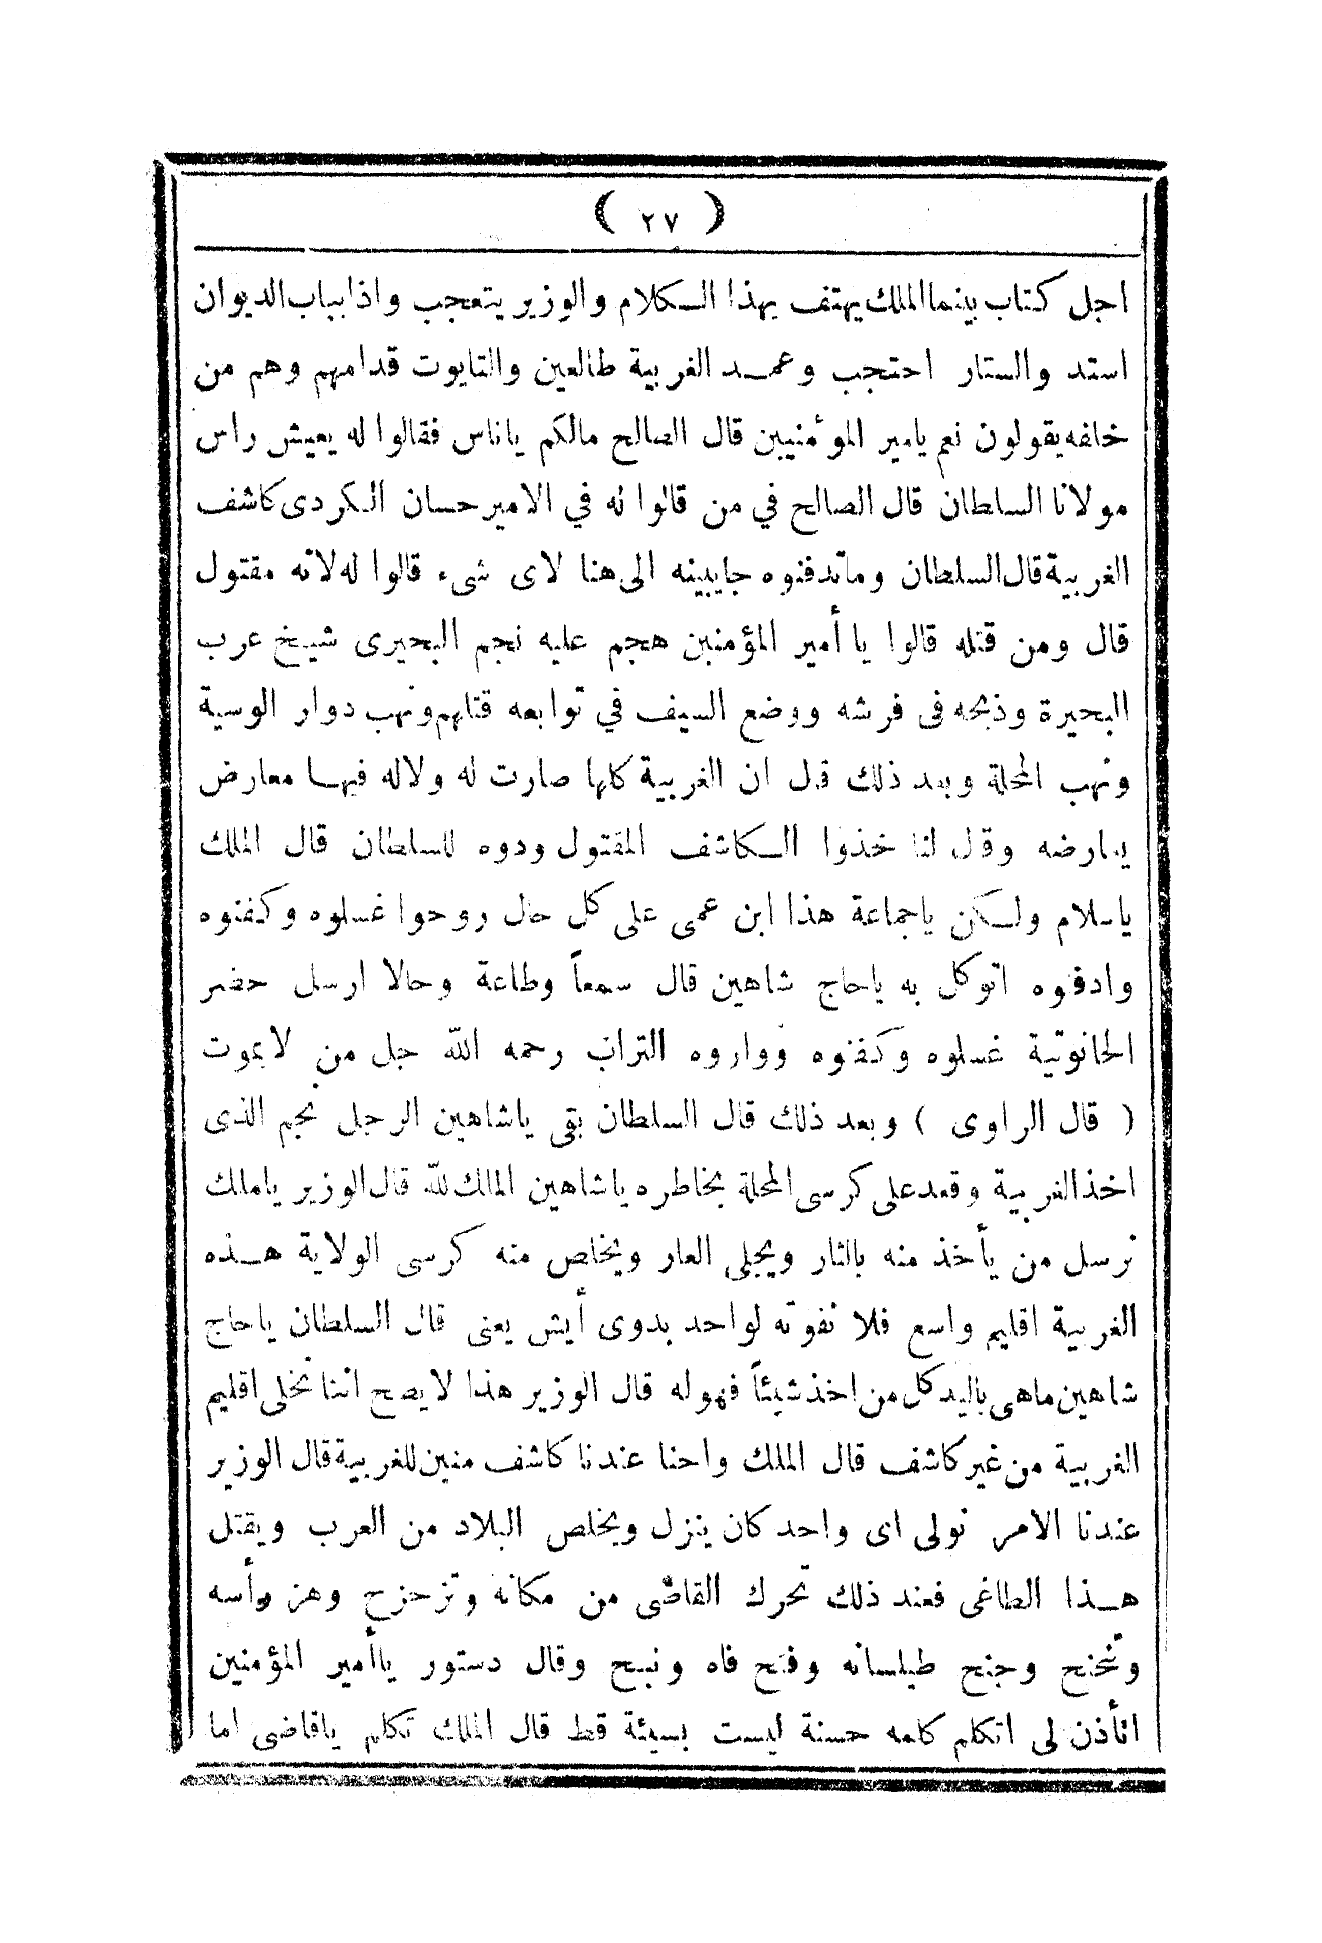 ( ٢٧ )
اجل كتاب بينما الملك يهتف بهذا الكلام والوزير يتعجب واذا بباب الديوان
استد والستار احتجب وعمد الغربية طالعين والتابوت قدامهم وهم من
خلفه يقولون نعم يامير المؤمنيين قال الصالح مالكم ياناس فقالوا له يعيش راس
مولانا السلطان قال الصالح في من قالوا له في الامير حسان الكردى كاشف
الغربية قال السلطان وماتدفنوه جايبينه الى هنا لاى شىء قالوا له لانه مقتول
قال ومن قتله قالوا يا أمير المؤمنين هجم عليه نجم البحيرى شيخ عرب
البحيرة وذبحه فى فرشه ووضع السيف في توابعه قتلهم ونهب دوار الوسية
ونهب المحلة وبعد ذلك قال ان الغربية كلها صارت له ولاله فيها معارض
يعارضه وقال لنا خذوا الكاشف المقتول ودوه للسلطان قال الملك
ياسلام ولكن ياجماعة هذا ابن عمى على كل حال روحوا غسلوه وكفنوه
وادفنوه اتوكل به ياحاج شاهين قال سمعاً وطاعة وحالا ارسل حضر
الحانوتية غسلوه وكفنوه وواروه التراب رحمه الله جل من لايموت
( قال الراوى ) وبعد ذلك قال السلطان بقى ياشاهين الرجل نجم الذى
اخذ الغربية وقعد على كرسى المحلة بخاطره ياشاهين الملك لله قال الوزير ياملك
نرسل من يأخذ منه بالثار ويجلى العار ويخلص منه كرسى الولاية هذه
الغربية اقليم واسع فلا نفوته لواحد بدوى أيش يعنى قال السلطان ياحاج
شاهين ماهى باليد كل من اخذ شيئاً فهوله قال الوزير هذا لايصح اننا نخلى اقليم
الغربية من غير كاشف قال الملك واحنا عندنا كاشف منين للغربية قال الوزير
عندنا الامر نولى اى واحد كان ينزل ويخلص البلاد من العرب ويقتل
هذا الطاغى فعند ذلك تحرك القاضى من مكانه وتزحزح وهز رأسه
وتنحنح وجنح طيلسانه وفتح فاه ونبح وقال دستور ياأمير المؤمنين
اتأذن لى اتكلم كلمه حسنة ليست بسيئة قط قال الملك تكلم ياقاضى اما